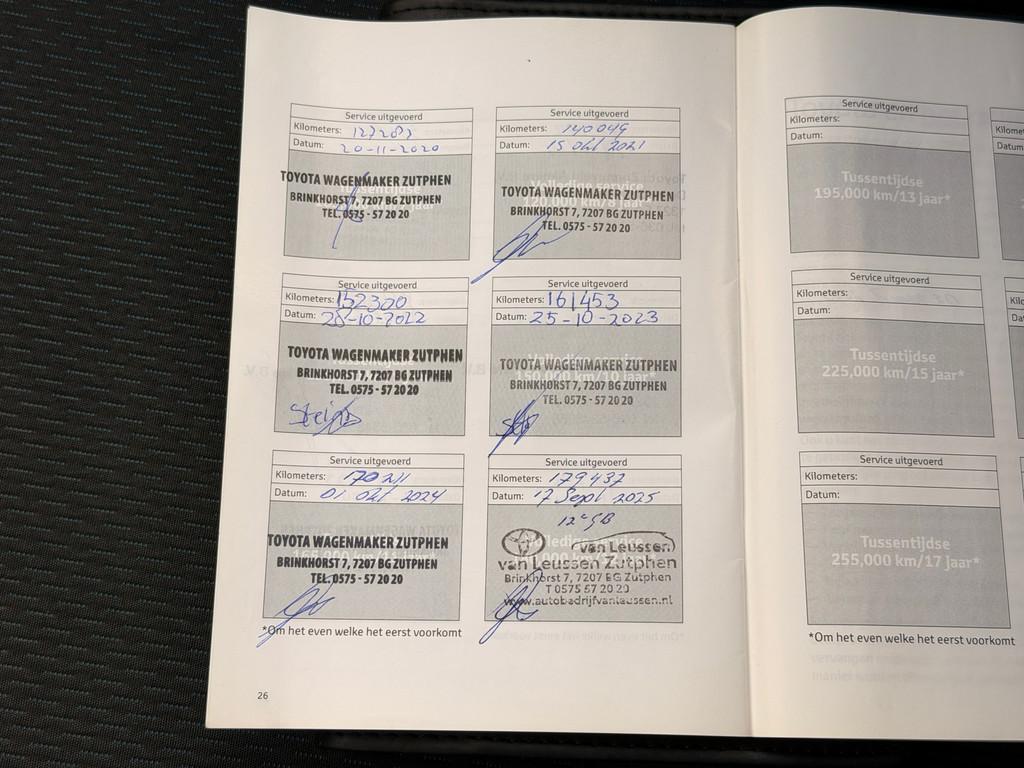 Service uitgevoerd
Kilometers: 127283
Datum: 20-11-2020
TOYOTA WAGENMAKER ZUTPHEN
BRINKHORST 7, 7207 BG ZUTPHEN
TEL. 0575 - 57 20 20
Service uitgevoerd
Kilometers: 140049
Datum: 15 okt 2021
Volledige service
120,000 km/8 jaar*
TOYOTA WAGENMAKER ZUTPHEN
BRINKHORST 7, 7207 BG ZUTPHEN
TEL. 0575 - 57 20 20
Service uitgevoerd
Kilometers: 152300
Datum: 28-10-2022
TOYOTA WAGENMAKER ZUTPHEN
BRINKHORST 7, 7207 BG ZUTPHEN
TEL. 0575 - 57 20 20
Service uitgevoerd
Kilometers: 161453
Datum: 25-10-2023
Volledige service
150,000 km/10 jaar*
TOYOTA WAGENMAKER ZUTPHEN
BRINKHORST 7, 7207 BG ZUTPHEN
TEL. 0575 - 57 20 20
Service uitgevoerd
Kilometers: 170211
Datum: 01 okt 2024
TOYOTA WAGENMAKER ZUTPHEN
165,000 km/11 jaar*
BRINKHORST 7, 7207 BG ZUTPHEN
TEL. 0575 - 57 20 20
Service uitgevoerd
Kilometers: 179432
Datum: 17 Sept 2025
Volledige service
van Leussen
van Leussen Zutphen
Brinkhorst 7, 7207 BG Zutphen
T 0575 57 20 20
www.autobedrijfvanleussen.nl
*Om het even welke het eerst voorkomt
26
Service uitgevoerd
Kilometers:
Datum:
Tussentijdse
195,000 km/13 jaar*
Service uitgevoerd
Kilometers:
Datum:
Tussentijdse
225,000 km/15 jaar*
Service uitgevoerd
Kilometers:
Datum:
Tussentijdse
255,000 km/17 jaar*
*Om het even welke het eerst voorkomt